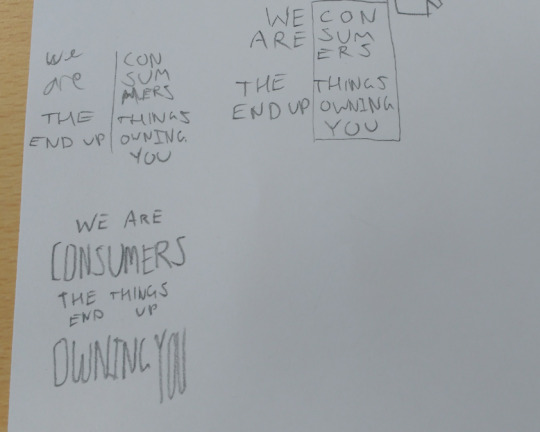 we CON
are SUM
MERS
THE THINGS
END UP OWNING
YOU
WE CON
ARE SUM
ERS
THE THINGS
END UP OWNING
YOU
WE ARE
CONSUMERS
THE THINGS
END UP
OWNING YOU